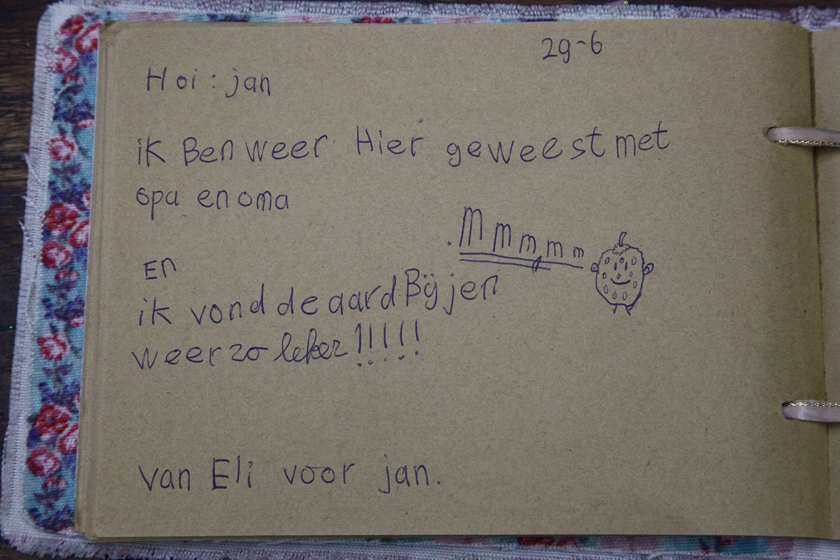 29-6
Hoi: jan
ik Ben weer Hier geweest met
opa en oma
Mmmmm
En
ik vond de aardBijen
weer zo leker!!!!!
van Eli voor jan.